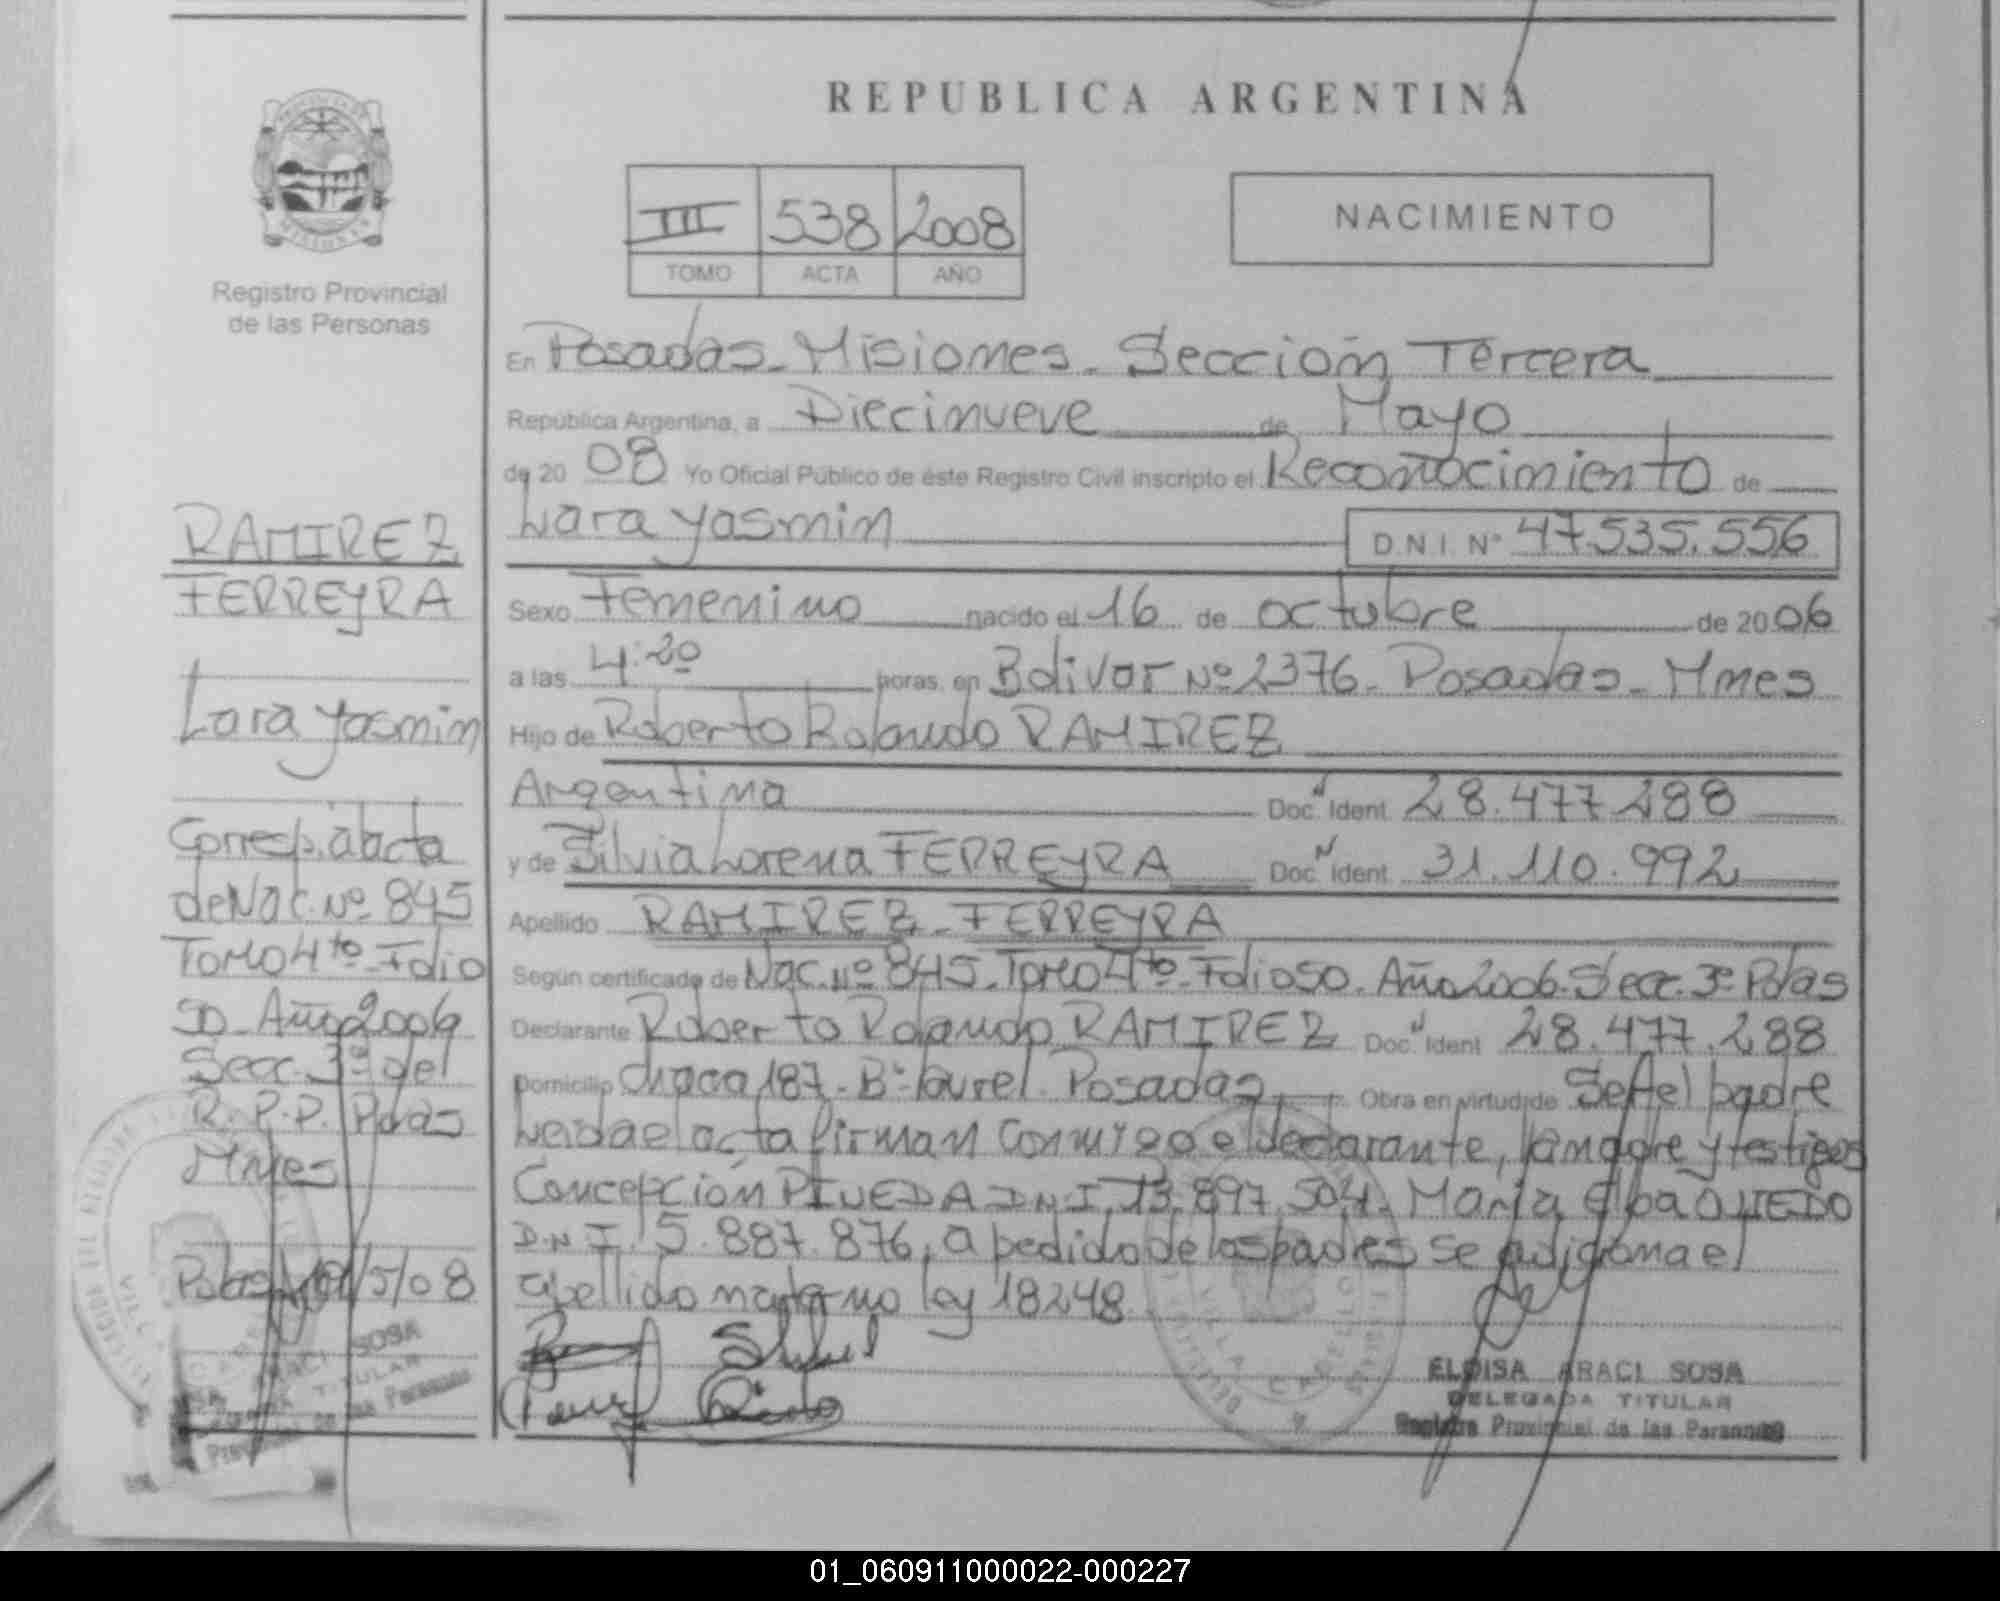 REPUBLICA ARGENTINA
III 538 2008
TOMO ACTA AÑO
NACIMIENTO
Registro Provincial
de las Personas
RAMIREZ
FERREYRA
Lara Yasmin
Corresp. a acta
de Nac. Nº 845
Tomo 4to Folio
50 Año 2006
Secc. 3º del
R.P.P. Pdas
Mnes
19/5/08
En Posadas - Misiones - Sección Tercera
República Argentina, a Diecinueve de Mayo
de 20 08 Yo Oficial Público de éste Registro Civil inscripto el Reconocimiento de
Lara Yasmin D.N.I. Nº 47.535.556
Sexo Femenino nacido el 16 de octubre de 2006
a las 4:20 horas, en Bolivar Nº 2376 - Posadas - Mnes
Hijo de Roberto Rolando RAMIREZ
Argentina Doc. Ident. 28.477.288
y de Silvia Lorena FERREYRA Doc. Ident. 31.110.992
Apellido RAMIREZ - FERREYRA
Según certificado de Nac. Nº 845 - Tomo 4to - Folio 50 - Año 2006 - Secc. 3º Pdas
Declarante Roberto Rolando RAMIREZ Doc. Ident. 28.477.288
Domicilio Chaca 187 - Bº Laurel - Posadas Obra en virtud de Ser el padre
Leida el acta firman conmigo el declarante, la madre y testigos
Concepción PINEDA D.N.I. 13.897.504. María Elba OVIEDO
D.N.I. 5.887.876, a pedido de los padres se adiciona el
apellido materno ley 18248
ELOISA ARACI SOSA
DELEGADA TITULAR
Registro Provincial de las Personas
01_060911000022-000227